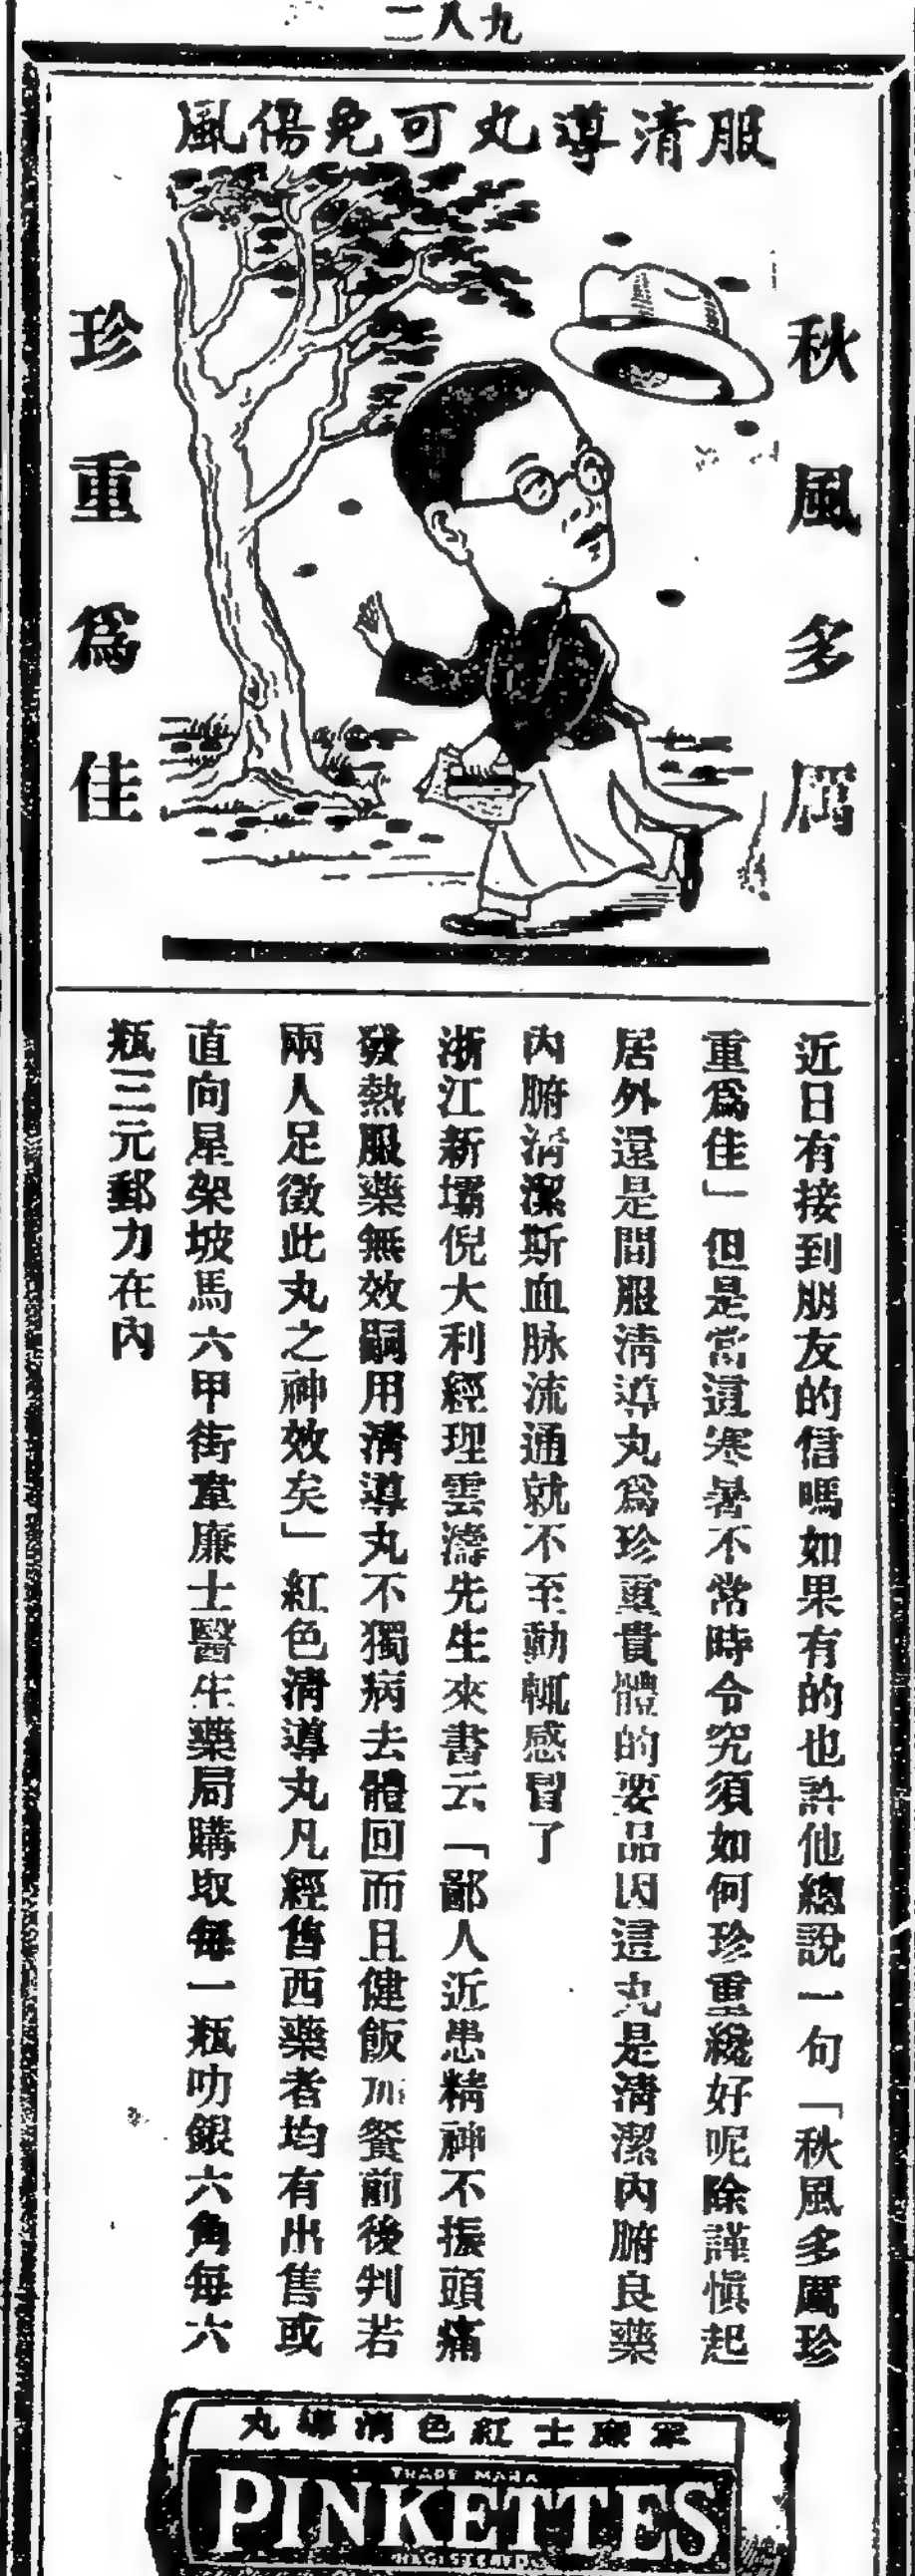 九八二
服清導丸可免傷風
秋風多厲
珍重為佳
近日有接到朋友的信嗎如果有的也許他總說一句「秋風多厲珍
重為佳」但是當這寒暑不常時令究須如何珍重纔好呢除謹慎起
居外還是間服清導丸為珍重貴體的要品因這丸是清潔內腑良藥
內腑清潔斯血脉流通就不至動輒感冒了
浙江新壩倪大利經理雲濤先生來書云「鄙人近患精神不振頭痛
發熱服藥無效嗣用清導丸不獨病去體回而且健飯加餐前後判若
兩人足徵此丸之神效矣」紅色清導丸凡經售西藥者均有出售或
直向星架坡馬六甲街韋廉士醫生藥局購取每一瓶叻銀六角每六
瓶三元郵力在內
韋廉士紅色清導丸
TRADE MARK
PINKETTES
REGISTERED